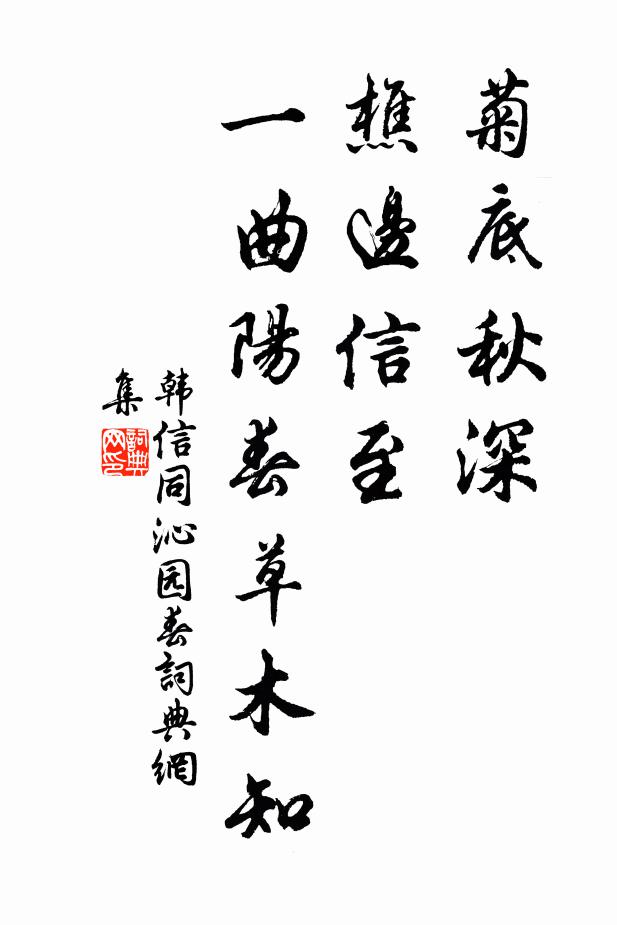 菊底秋深
樵邊信至
一曲陽春草木知
韩信同沁园春詞典網
集
詞典
网印